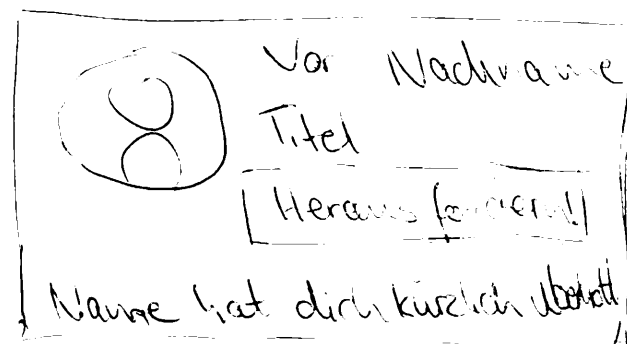 Vor Nachname
Titel
Herausfordern!
Name hat dich kürzlich überholt